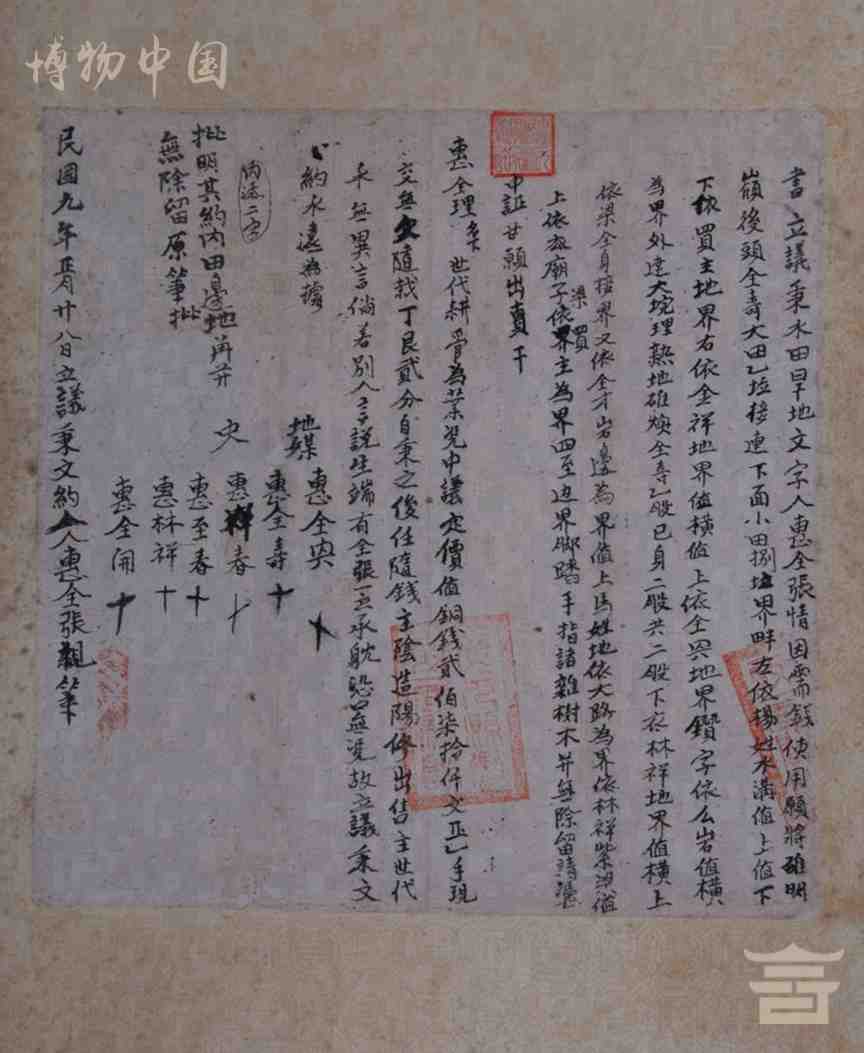 博物中国
書立議秉水田旱地文字人惠全張情因需錢使用願將雄明
嶺後頭全壽大田乙坵接連下面小田捌坵界畔左依楊姓水溝值上值下
下依買主地界右依全祥地界值橫值上依全興地界鑽字依么岩值橫
為界外達大塆理熟地碓煥全壽乙股己身二股共二股下依林祥地界值橫上
依梁全身接界又依全才岩邊為界值上馬姓地依大路為界依林祥柴溝值
上依放廟子梁依買主為界四至边界脚踏手指諸雜樹木并無除留請憑
中証甘願出賣于
惠全理名下世代耕管為業憑中議定價值銅錢貳伯柒拾仟文正乙手現
交無欠隨找丁艮貳分自秉之後任隨錢主陰造陽修出售主世代
永無異言倘若別人言說生端有全張一立承躭恐口無憑故立議秉文
約永遠為據
内添二字
批明其約内田邊地角并
無除留原筆批
地媒
惠全興 十
惠全壽 十
惠祥春 十
惠至春 十
惠林祥 十
惠全開 十
民国九年正月廿八日立議秉文約人惠全張親筆